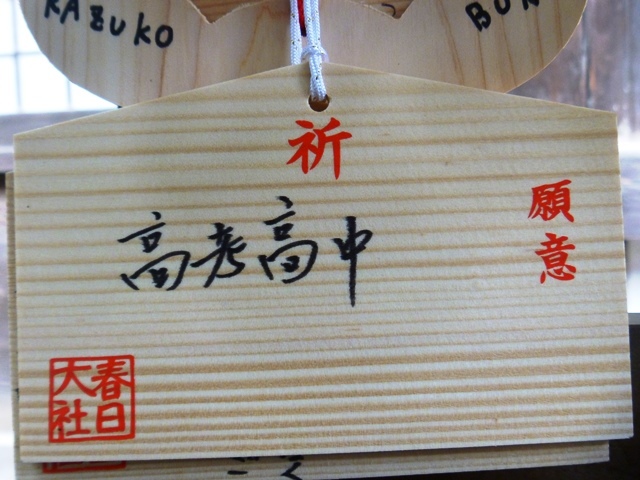 KAZUKO
祈
願意
高考高中
春日
大社